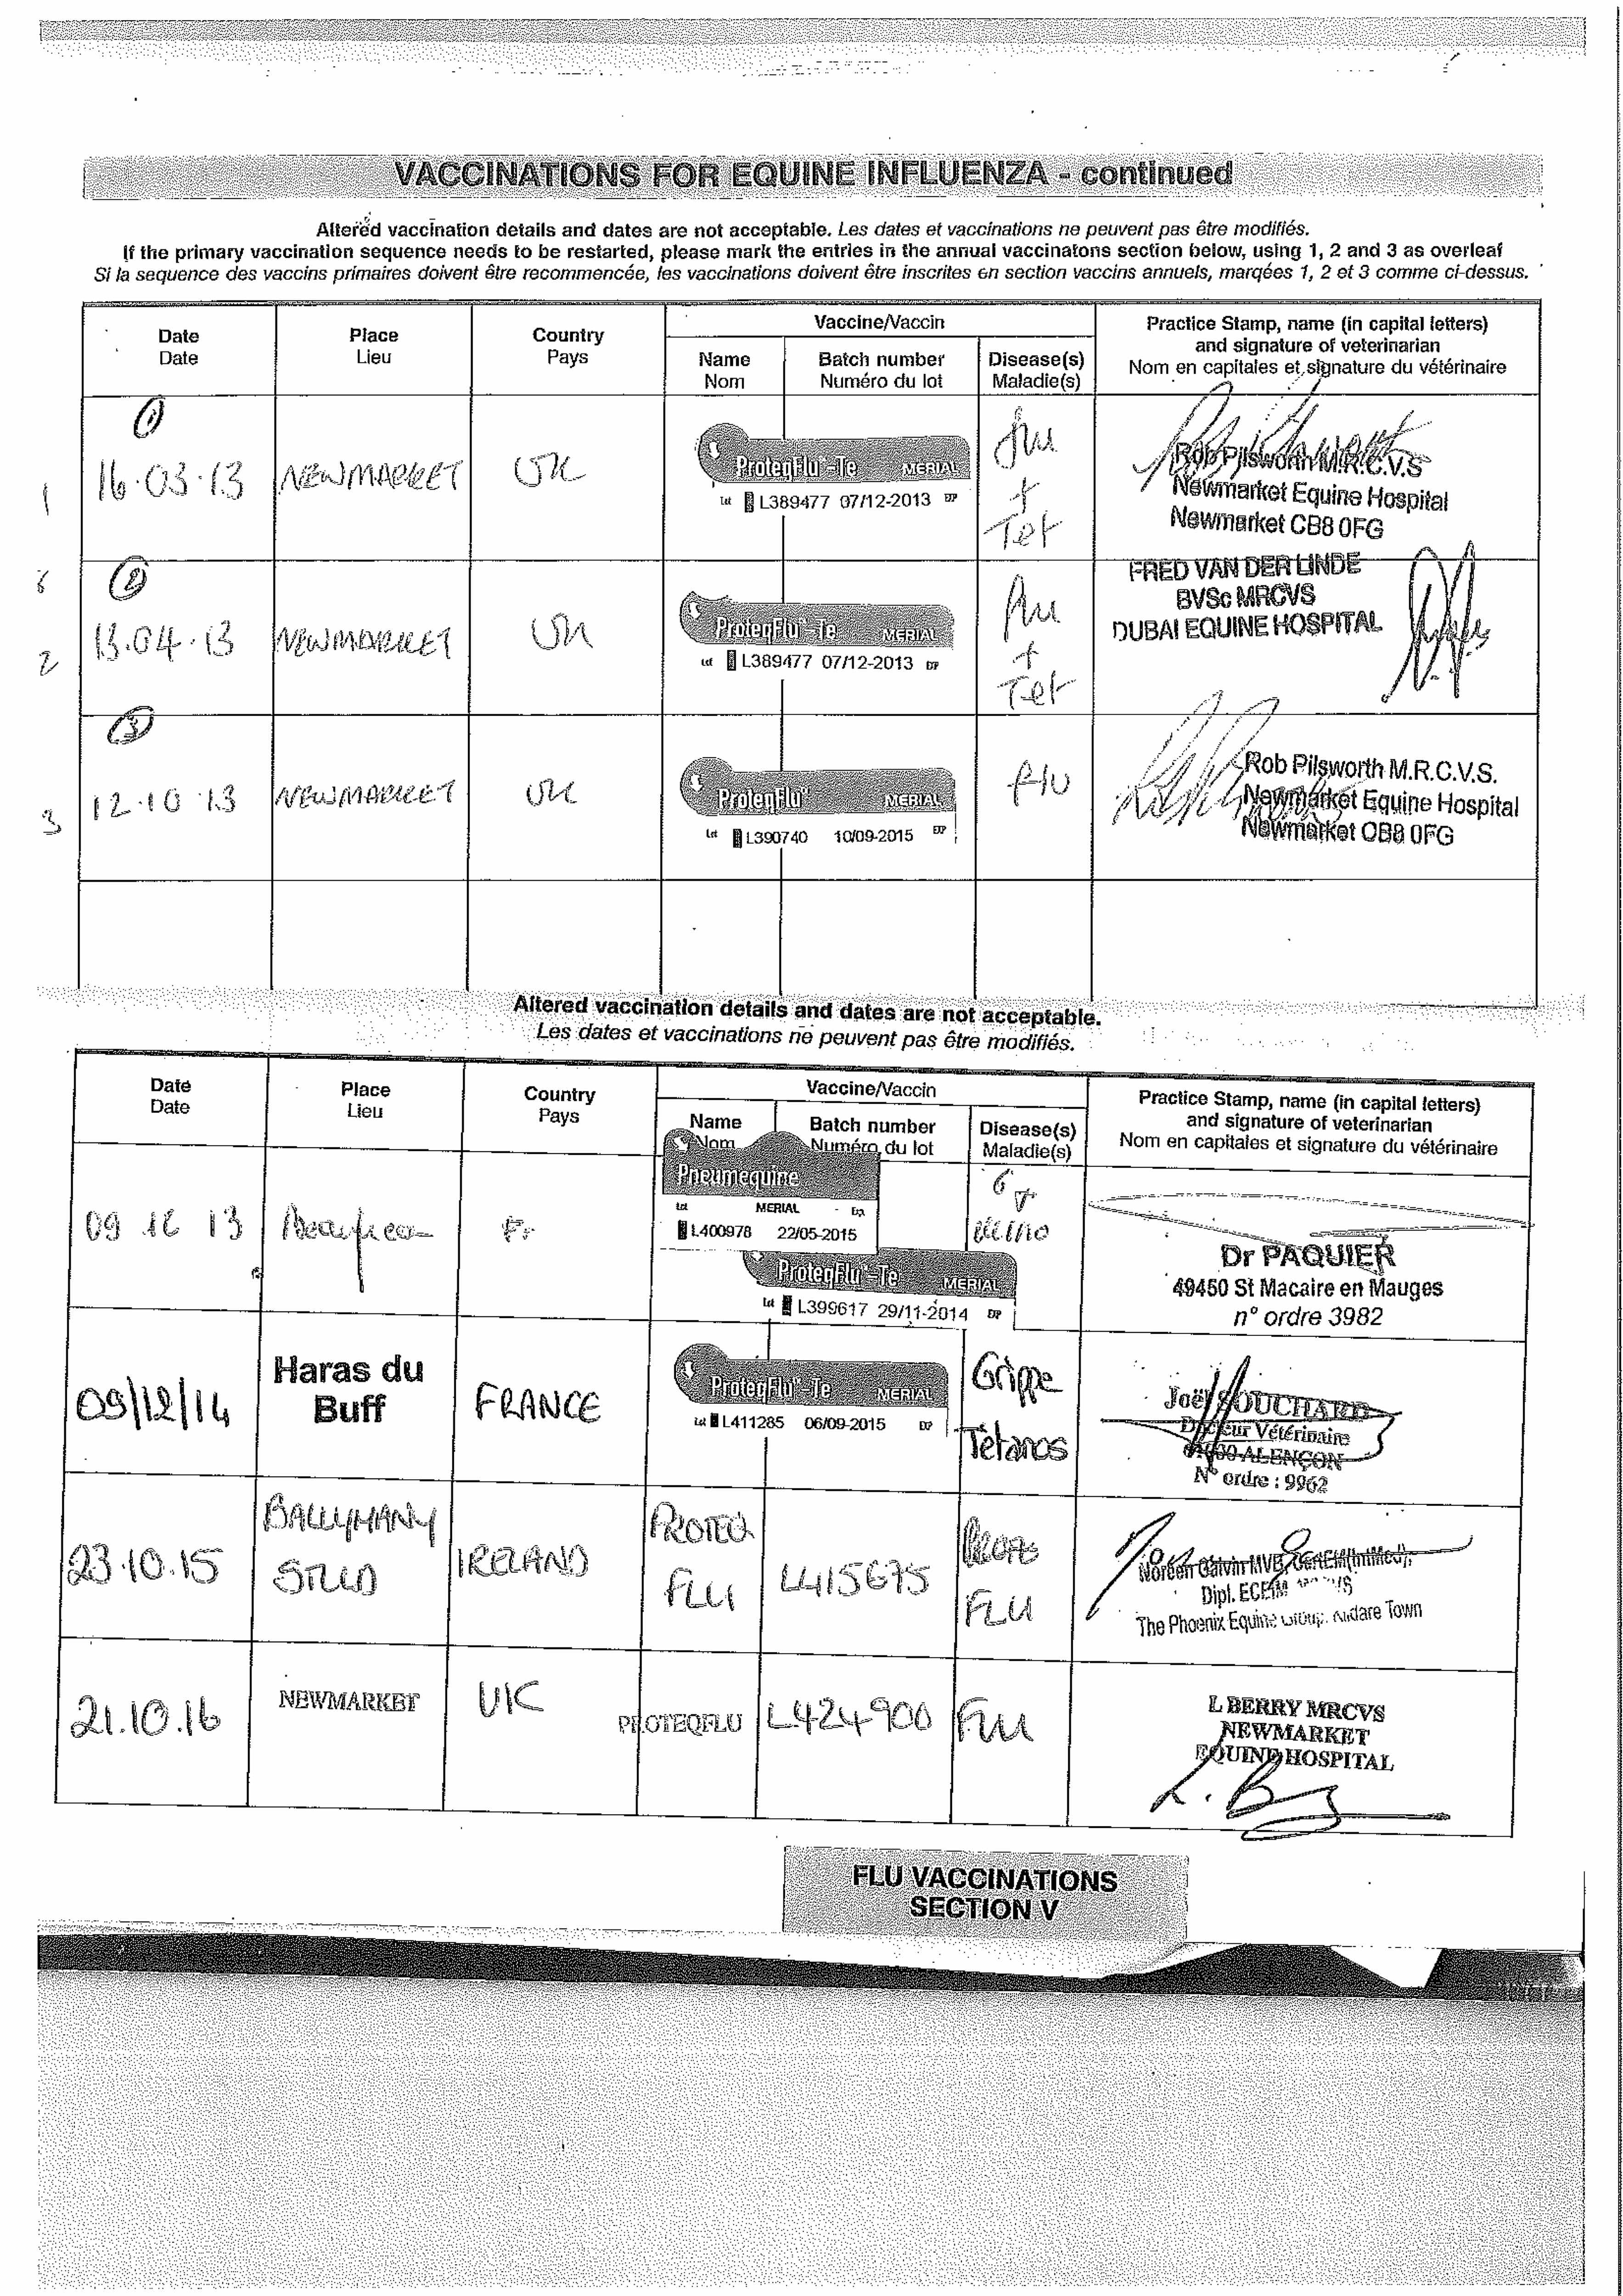 VACCINATIONS FOR EQUINE INFLUENZA - continued
Altered vaccination details and dates are not acceptable. Les dates et vaccinations ne peuvent pas être modifiés.
If the primary vaccination sequence needs to be restarted, please mark the entries in the annual vaccinatons section below, using 1, 2 and 3 as overleaf
Si la sequence des vaccins primaires doivent être recommencée, les vaccinations doivent être inscrites en section vaccins annuels, marqées 1, 2 et 3 comme ci-dessus.
Date Place Country Vaccine/Vaccin Practice Stamp, name (in capital letters)
Date Lieu Pays and signature of veterinarian
Name Batch number Disease(s) Nom en capitales et signature du vétérinaire
Nom Numéro du lot Maladie(s)
1
1 16.03.13 NEWMARKET UK ProteqFlu-Te MERIAL flu + Tet Rob Pilsworth M.R.C.V.S
Lot L389477 07/12-2013 EXP Newmarket Equine Hospital
Newmarket CB8 0FG
2
2 13.04.13 NEWMARKET UK ProteqFlu-Te MERIAL flu + Tet FRED VAN DER LINDE
BVSc MRCVS
Lot L389477 07/12-2013 EXP DUBAI EQUINE HOSPITAL
3
3 12.10.13 NEWMARKET UK ProteqFlu MERIAL flu Rob Pilsworth M.R.C.V.S.
Lot L390740 10/09-2015 EXP Newmarket Equine Hospital
Newmarket CB8 0FG
Altered vaccination details and dates are not acceptable.
Les dates et vaccinations ne peuvent pas être modifiés.
Date Place Country Vaccine/Vaccin Practice Stamp, name (in capital letters)
Date Lieu Pays and signature of veterinarian
Name Batch number Disease(s) Nom en capitales et signature du vétérinaire
Nom Numéro du lot Maladie(s)
09 12 13 Fr Pneumequine
Lot MERIAL Exp
L400978 22/05-2015
ProteqFlu-Te MERIAL
Lot L399617 29/11-2014 EXP
Dr PAQUIER
49450 St Macaire en Mauges
n° ordre 3982
09/12/14 Haras du Buff FRANCE ProteqFlu-Te MERIAL Grippe Tétanos
Lot L411285 06/09-2015 EXP
Joël SOUCHARD
Docteur Vétérinaire
61000 ALENÇON
N° ordre : 9962
23.10.15 BALLYMANY STUD IRELAND PROTEQ FLU L415675 FLU
Noreen Galvin MVB, CertEM(IntMed),
Dipl. ECEIM
The Phoenix Equine Group, Kildare Town
21.10.16 NEWMARKET UK PROTEQFLU L424900 FLU
L BERRY MRCVS
NEWMARKET
EQUINE HOSPITAL
L. B
FLU VACCINATIONS
SECTION V